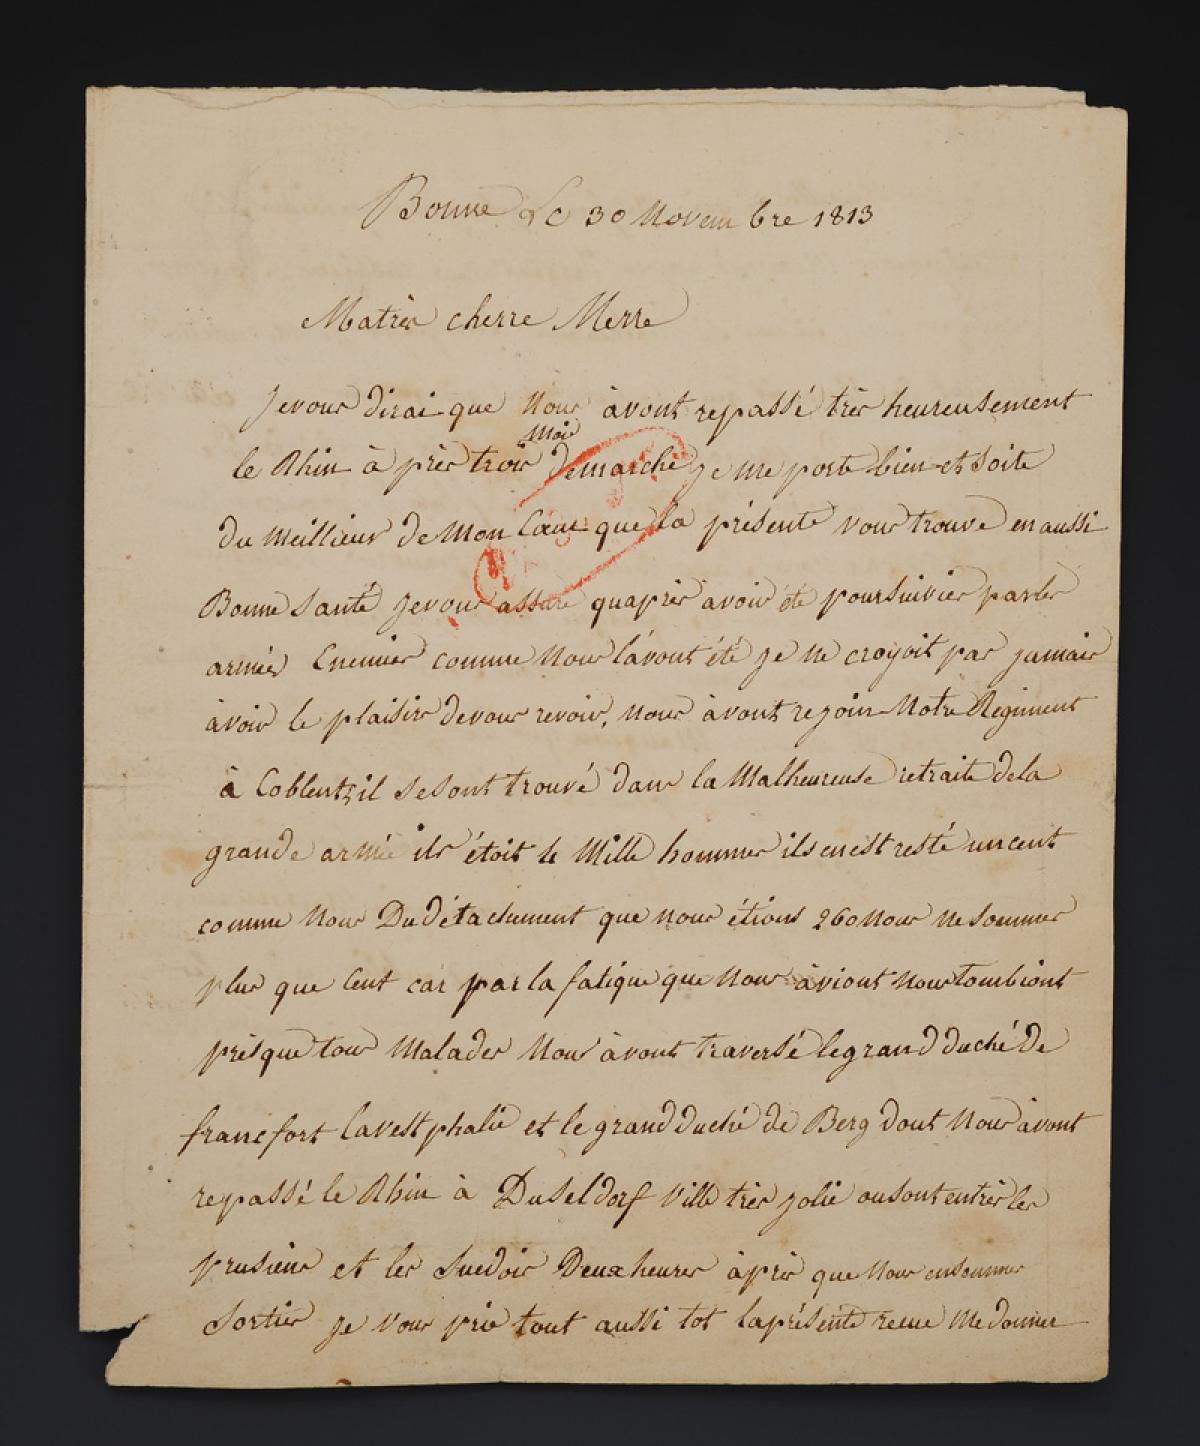 Bonne Le 30 Novembre 1813
Matrès cherre Merre
Jevous dirai que Nous àvont repassé très heureusement
le Rhin à près trois Mois demarche je me porte bien et soite
du meillieur de Mon Cœur que la présente vous trouve en aussi
Bonne santé jevous assure quaprès avoir été poursuivies parles
armées Enemies comme Nous l'avont été je ne croyoit pas jamais
àvoir le plaisir devous revoir, nous àvont rejoin Notre Régiment
à Coblentz il sesont trouvé dans la Malheureuse retraite dela
grande armée ils étoit le Mille hommes ils enest resté uncent
comme Nous Du détachement que nous étions 260 Nous ne sommes
plus que Cent car par la fatigue que Nous àviont Nous tombiont
présque tous Malades Nous àvont traversé legrand duché de
francfort lavestphalie et le grand duché de Berg dont Nous àvont
repassé le Rhin à Duseldorf Ville très jolie ousont entrés les
prusiens et les Suedois Deux heures àprès que Nous ensommes
Sorties je vous prie tout aussi tot laprésente recue Me donner